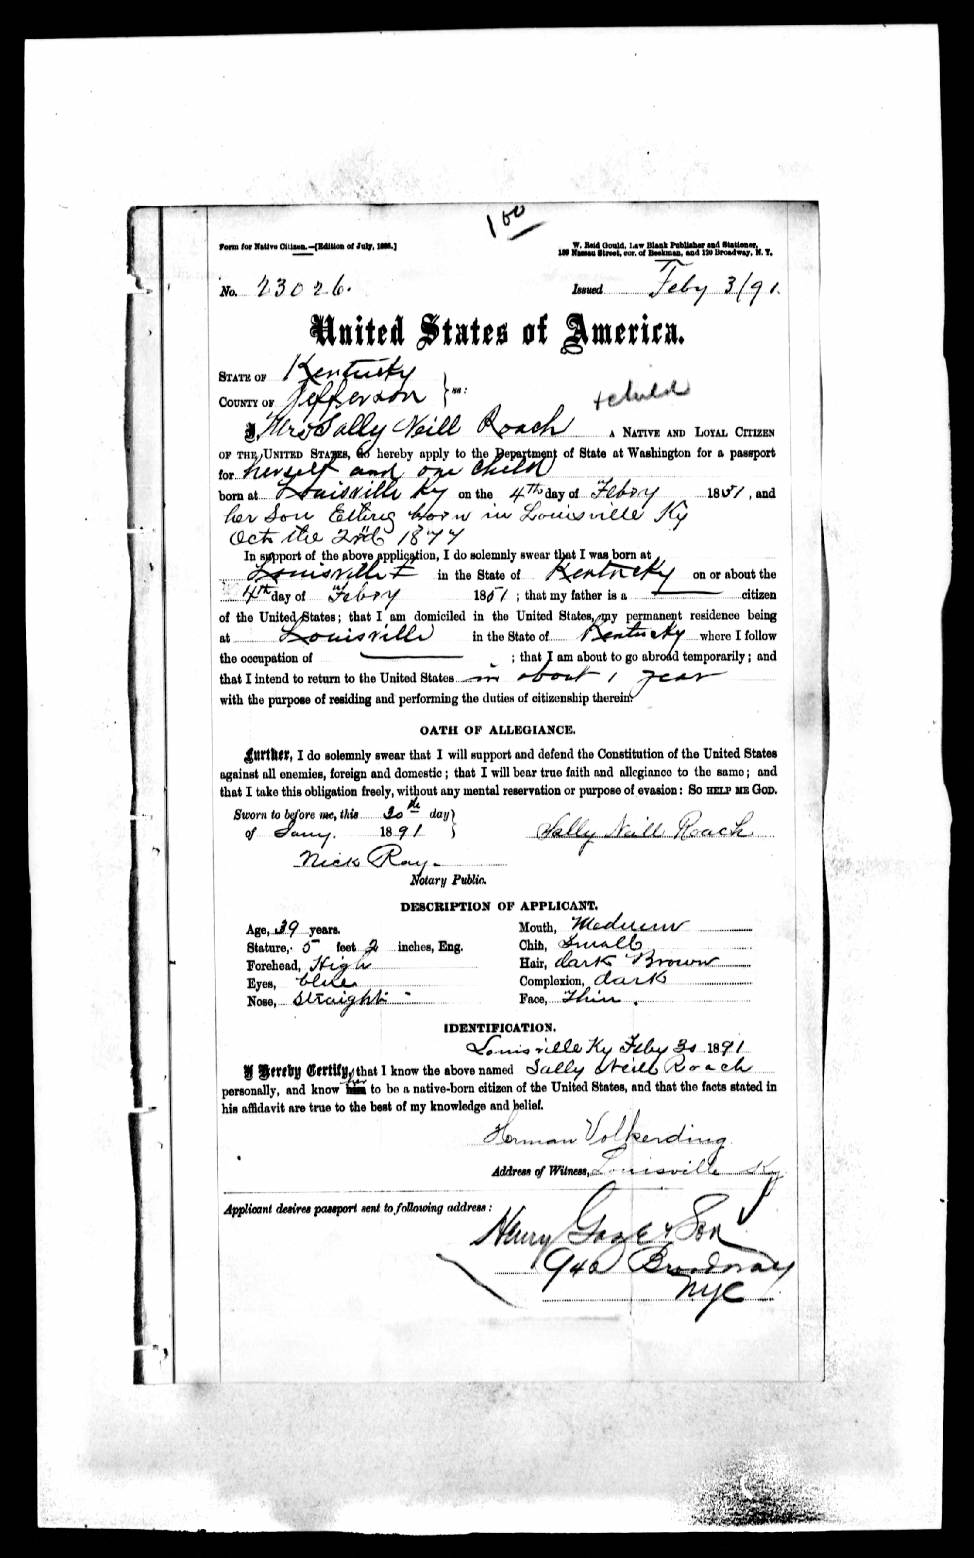 1 00
Form for Native Citizen.—[Edition of July, 1888.]
W. Reid Gould, Law Blank Publisher and Stationer,
139 Nassau Street, cor. of Beekman, and 120 Broadway, N. Y.
No. 23026. Issued Feby 3/91.
United States of America.
STATE OF Kentucky
COUNTY OF Jefferson } ss:
+ child
I, Mrs Sally Neill Roach A NATIVE AND LOYAL CITIZEN
OF THE UNITED STATES, do hereby apply to the Department of State at Washington for a passport
for herself and one child
born at Louisville Ky on the 4th day of Febry 1851, and
her Son born in Louisville Ky
Oct the 1877
In support of the above application, I do solemnly swear that I was born at
Louisville in the State of Kentucky on or about the
4th day of Febry 1851; that my father is a citizen
of the United States; that I am domiciled in the United States, my permanent residence being
at Louisville in the State of Kentucky where I follow
the occupation of ; that I am about to go abroad temporarily; and
that I intend to return to the United States in about 1 year
with the purpose of residing and performing the duties of citizenship therein.
OATH OF ALLEGIANCE.
Further, I do solemnly swear that I will support and defend the Constitution of the United States
against all enemies, foreign and domestic; that I will bear true faith and allegiance to the same; and
that I take this obligation freely, without any mental reservation or purpose of evasion: SO HELP ME GOD.
Sworn to before me, this 30th day }
of Jany. 1891 } Sally Neill Roach
Nick Ray
Notary Public.
DESCRIPTION OF APPLICANT.
Age, 39 years. Mouth, Medium
Stature, 5 feet 2 inches, Eng. Chin, Small
Forehead, High Hair, dark Brown
Eyes, blue Complexion, dark
Nose, straight Face, Thin.
IDENTIFICATION.
Louisville Ky Feby 30 1891
I Hereby Certify, that I know the above named Sally Neill Roach
personally, and know her him to be a native-born citizen of the United States, and that the facts stated in
his affidavit are true to the best of my knowledge and belief.
Herman Volkerding
Address of Witness, Louisville Ky
Applicant desires passport sent to following address:
Henry Gaze & Son
940 Broadway
NYC